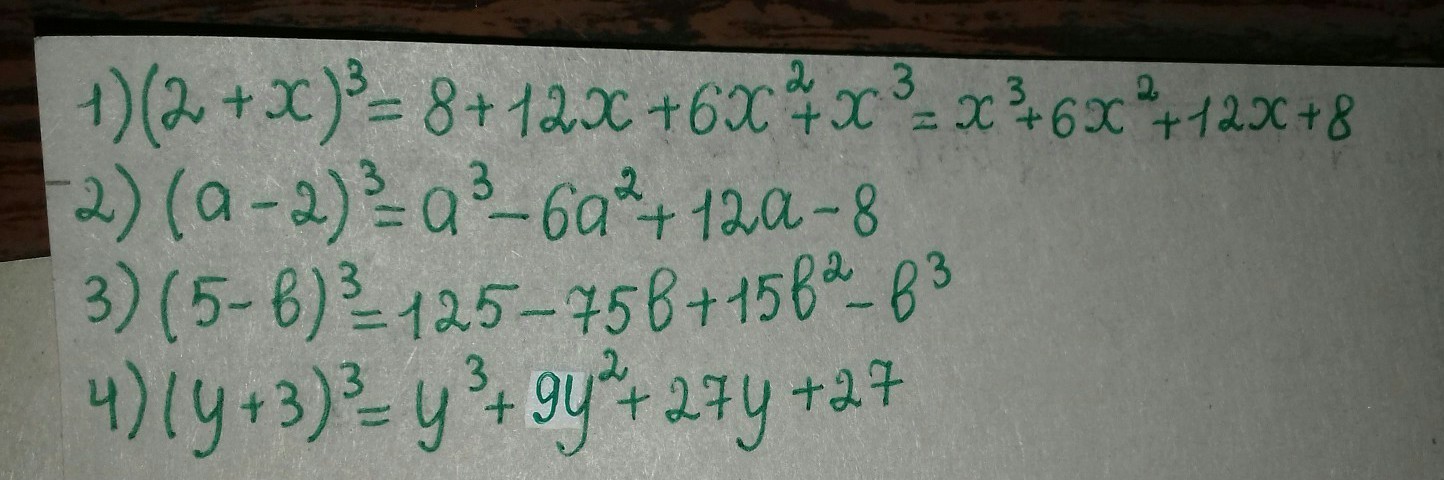 1) (2 + x)³ = 8 + 12x + 6x² + x³ = x³ + 6x² + 12x + 8
2) (a - 2)³ = a³ - 6a² + 12a - 8
3) (5 - b)³ = 125 - 75b + 15b² - b³
4) (y + 3)³ = y³ + 9y² + 27y + 27